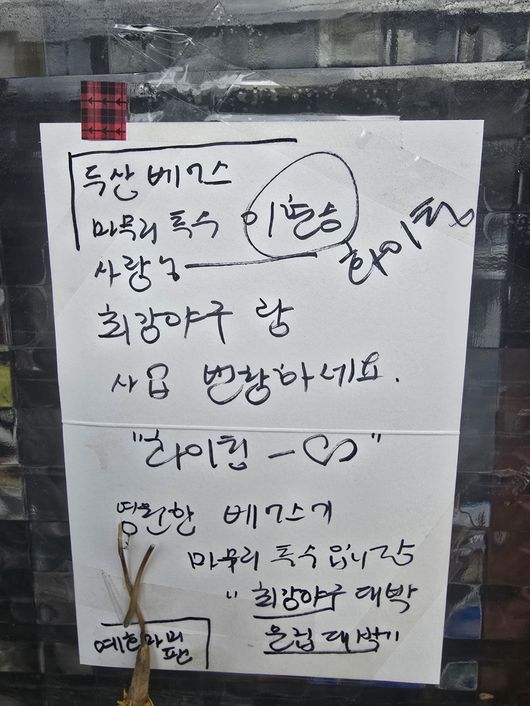 두산 베어스
마무리 특수 이현승
화이팅
사랑님
최강야구 랑
사업 번창하세요.
"화이팅 - ♡"
영원한 베어스기
마무리 특수입니다
" 최강야구 대박
올림 대박기
예헌마미
팬